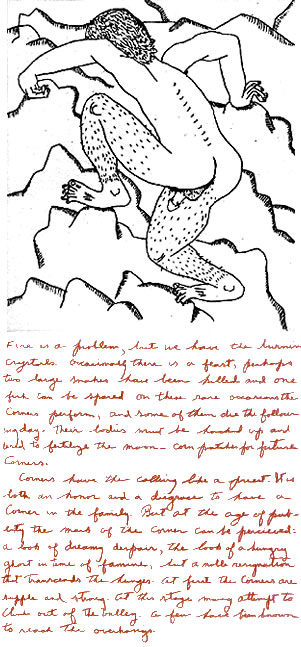 Fire is a problem, but we have the burnin
crystals. Occasionally there is a feast, perhaps
two large snakes have been killed and one
fish can be spared on these rare occasions the
Comers perform, and some of them die the follow
ing day. Their bodies must be hooked up and
used to fertilize the moon-corn patches for future
Comers.
Comers have the calling like a priest. It is
both an honor and a disgrace to have a
Comer in the family. But at the age of pub-
erty the mark of the Comer can be perceived:
a look of dreamy despair, the look of a hungry
ghost in time of famine, but a noble resignation
that transcends the hunger. At first the Comers are
supple and strong. At this stage many attempt to
climb out of the valley. A few have been known
to reach the overhangs.